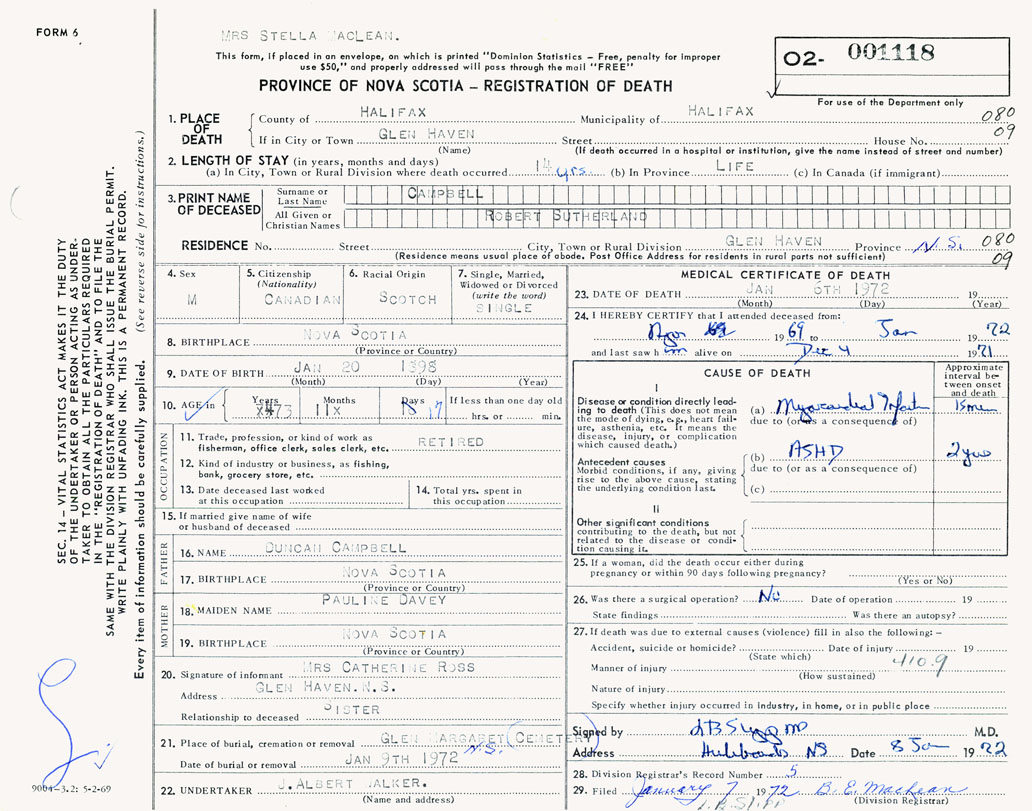 FORM 6
MRS STELLA MACLEAN.
This form, if placed in an envelope, on which is printed "Dominion Statistics – Free, penalty for improper
use $50," and properly addressed will pass through the mail "FREE"
O2- 001118
PROVINCE OF NOVA SCOTIA – REGISTRATION OF DEATH
For use of the Department only
1. PLACE OF DEATH
County of HALIFAX Municipality of HALIFAX 080
If in City or Town GLEN HAVEN Street House No. 09
(Name) (If death occurred in a hospital or institution, give the name instead of street and number)
2. LENGTH OF STAY (in years, months and days)
(a) In City, Town or Rural Division where death occurred 14 yrs. (b) In Province LIFE (c) In Canada (if immigrant)
3. PRINT NAME OF DECEASED
Surname or Last Name CAMPBELL
All Given or Christian Names ROBERT SUTHERLAND
RESIDENCE No. Street City, Town or Rural Division GLEN HAVEN Province N.S. 080
(Residence means usual place of abode. Post Office Address for residents in rural parts not sufficient) 09
4. Sex
M
5. Citizenship
(Nationality)
CANADIAN
6. Racial Origin
SCOTCH
7. Single, Married,
Widowed or Divorced
(write the word)
SINGLE
8. BIRTHPLACE NOVA SCOTIA
(Province or Country)
9. DATE OF BIRTH JAN 20 1898
(Month) (Day) (Year)
10. AGE in Years 73 Months 11 Days 17 If less than one day old
hrs. or min.
OCCUPATION
11. Trade, profession, or kind of work as
fisherman, office clerk, sales clerk, etc. RETIRED
12. Kind of industry or business, as fishing,
bank, grocery store, etc.
13. Date deceased last worked
at this occupation
14. Total yrs. spent in
this occupation
15. If married give name of wife
or husband of deceased
FATHER
16. NAME DUNCAN CAMPBELL
17. BIRTHPLACE NOVA SCOTIA
(Province or Country)
MOTHER
18. MAIDEN NAME PAULINE DAVEY
19. BIRTHPLACE NOVA SCOTIA
(Province or Country)
20. Signature of informant MRS CATHERINE ROSS
Address GLEN HAVEN.N.S.
Relationship to deceased SISTER
21. Place of burial, cremation or removal GLEN MARGARET (CEMETERY)
N.S.
Date of burial or removal JAN 9TH 1972
22. UNDERTAKER J.ALBERT WALKER.
(Name and address)
MEDICAL CERTIFICATE OF DEATH
23. DATE OF DEATH JAN 6TH 1972 19
(Month) (Day) (Year)
24. I HEREBY CERTIFY that I attended deceased from:
1969 to Jan 1972
and last saw him alive on Dec 4 1971
CAUSE OF DEATH
Approximate
interval be-
tween onset
and death
I
Disease or condition directly lead-
ing to death (This does not mean
the mode of dying, e.g., heart fail-
ure, asthenia, etc. It means the
disease, injury, or complication
which caused death.)
(a) Myocardial Infarct
due to (or as a consequence of)
Antecedent causes
Morbid conditions, if any, giving
rise to the above cause, stating
the underlying condition last.
(b) ASHD 2 yrs
due to (or as a consequence of)
(c)
II
Other significant conditions
contributing to the death, but not
related to the disease or condi-
tion causing it.
25. If a woman, did the death occur either during
pregnancy or within 90 days following pregnancy?
(Yes or No)
26. Was there a surgical operation? No Date of operation 19
State findings Was there an autopsy?
27. If death was due to external causes (violence) fill in also the following: –
Accident, suicide or homicide? Date of injury 19
(State which) 410.9
Manner of injury
(How sustained)
Nature of injury
Specify whether injury occurred in industry, in home, or in public place
Signed by M.D.
Address Hubbards NS Date 8 Jan 1972
28. Division Registrar's Record Number 5
29. Filed January 7 1972 B. E. MacLean
(Division Registrar)
SEC. 14 – VITAL STATISTICS ACT MAKES IT THE DUTY
OF THE UNDERTAKER OR PERSON ACTING AS UNDER-
TAKER TO OBTAIN ALL THE PARTICULARS REQUIRED
IN THE "REGISTRATION OF DEATH" AND TO FILE THE
SAME WITH THE DIVISION REGISTRAR WHO SHALL ISSUE THE BURIAL PERMIT.
WRITE PLAINLY WITH UNFADING INK. THIS IS A PERMANENT RECORD.
Every item of information should be carefully supplied. (See reverse side for instructions.)
9004-3.2: 5-2-69